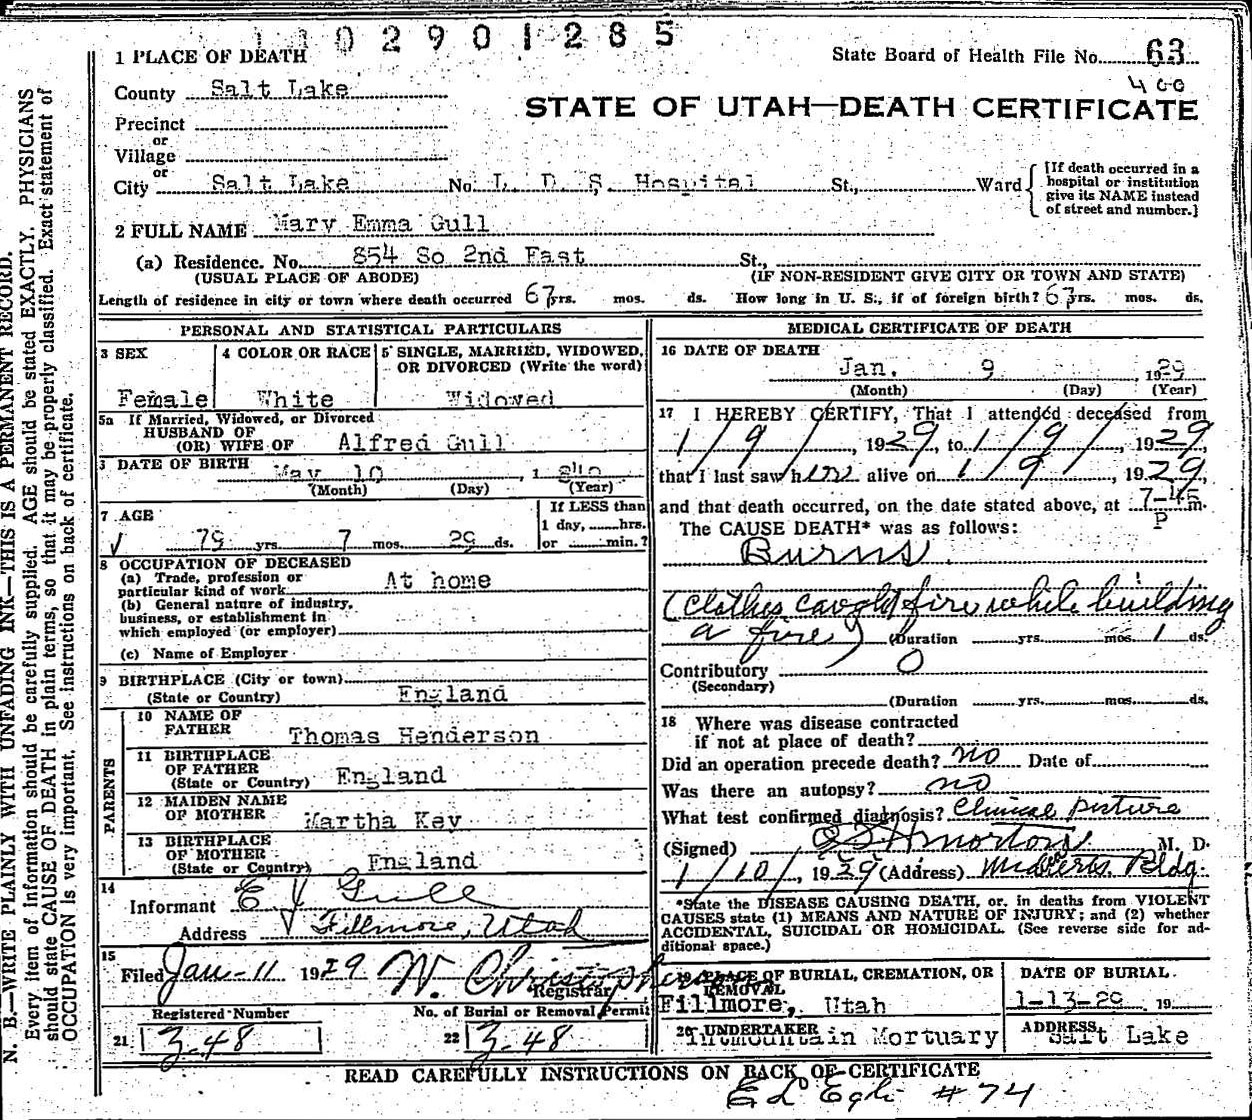 1 1 0 2 9 0 1 2 8 5
1 PLACE OF DEATH
State Board of Health File No. 63
400
County Salt Lake
STATE OF UTAH—DEATH CERTIFICATE
Precinct
or
Village
or
City Salt Lake No. L. D. S. Hospital St., Ward
[If death occurred in a hospital or institution give its NAME instead of street and number.]
2 FULL NAME Mary Emma Gull
(a) Residence. No. 854 So 2nd East St.,
(USUAL PLACE OF ABODE) (IF NON-RESIDENT GIVE CITY OR TOWN AND STATE)
Length of residence in city or town where death occurred 67 yrs. mos. ds. How long in U. S., if of foreign birth? 67 yrs. mos. ds.
PERSONAL AND STATISTICAL PARTICULARS
3 SEX
Female
4 COLOR OR RACE
White
5 SINGLE, MARRIED, WIDOWED, OR DIVORCED (Write the word)
Widowed
5a If Married, Widowed, or Divorced
HUSBAND OF
(OR) WIFE OF Alfred Gull
DATE OF BIRTH May 10, 1849
(Month) (Day) (Year)
7 AGE
79 yrs. 7 mos. 29 ds.
If LESS than
1 day, hrs.
or min.?
8 OCCUPATION OF DECEASED
(a) Trade, profession or
particular kind of work At home
(b) General nature of industry,
business, or establishment in
which employed (or employer)
(c) Name of Employer
9 BIRTHPLACE (City or town)
(State or Country) England
PARENTS
10 NAME OF
FATHER Thomas Henderson
11 BIRTHPLACE
OF FATHER
(State or Country) England
12 MAIDEN NAME
OF MOTHER Martha Key
13 BIRTHPLACE
OF MOTHER
(State or Country) England
14
Informant E J Gull
Address Fillmore, Utah
15
Filed Jan-11 1929 W. Christopherson
Registrar
Registered Number No. of Burial or Removal Permit
21 3-48 22 3-48
MEDICAL CERTIFICATE OF DEATH
16 DATE OF DEATH
Jan. 9 1929
(Month) (Day) (Year)
17 I HEREBY CERTIFY, That I attended deceased from
1/9/, 1929, to 1/9/, 1929,
that I last saw h alive on 1/9/, 1929,
and that death occurred, on the date stated above, at 7-45 P m.
The CAUSE DEATH* was as follows:
Burns
(Clothes caught fire while building
a fire) (Duration yrs. mos. 1 ds.
Contributory 0
(Secondary)
(Duration yrs. mos. ds.
18 Where was disease contracted
if not at place of death?
Did an operation precede death? no Date of
Was there an autopsy? no
What test confirmed diagnosis? Clinical picture
(Signed) M. D.
1/10/, 1929 (Address) Bldg.
*State the DISEASE CAUSING DEATH, or, in deaths from VIOLENT
CAUSES state (1) MEANS AND NATURE OF INJURY; and (2) whether
ACCIDENTAL, SUICIDAL OR HOMICIDAL. (See reverse side for ad-
ditional space.)
19 PLACE OF BURIAL, CREMATION, OR
REMOVAL
Fillmore, Utah
DATE OF BURIAL
1-13-29 19
20 UNDERTAKER
Intmountain Mortuary
ADDRESS
Salt Lake
READ CAREFULLY INSTRUCTIONS ON BACK OF CERTIFICATE
E L Egli # 74
N. B.—WRITE PLAINLY WITH UNFADING INK—THIS IS A PERMANENT RECORD.
Every item of information should be carefully supplied. AGE should be stated EXACTLY. PHYSICIANS
should state CAUSE OF DEATH in plain terms, so that it may be properly classified. Exact statement of
OCCUPATION is very important. See instructions on back of certificate.